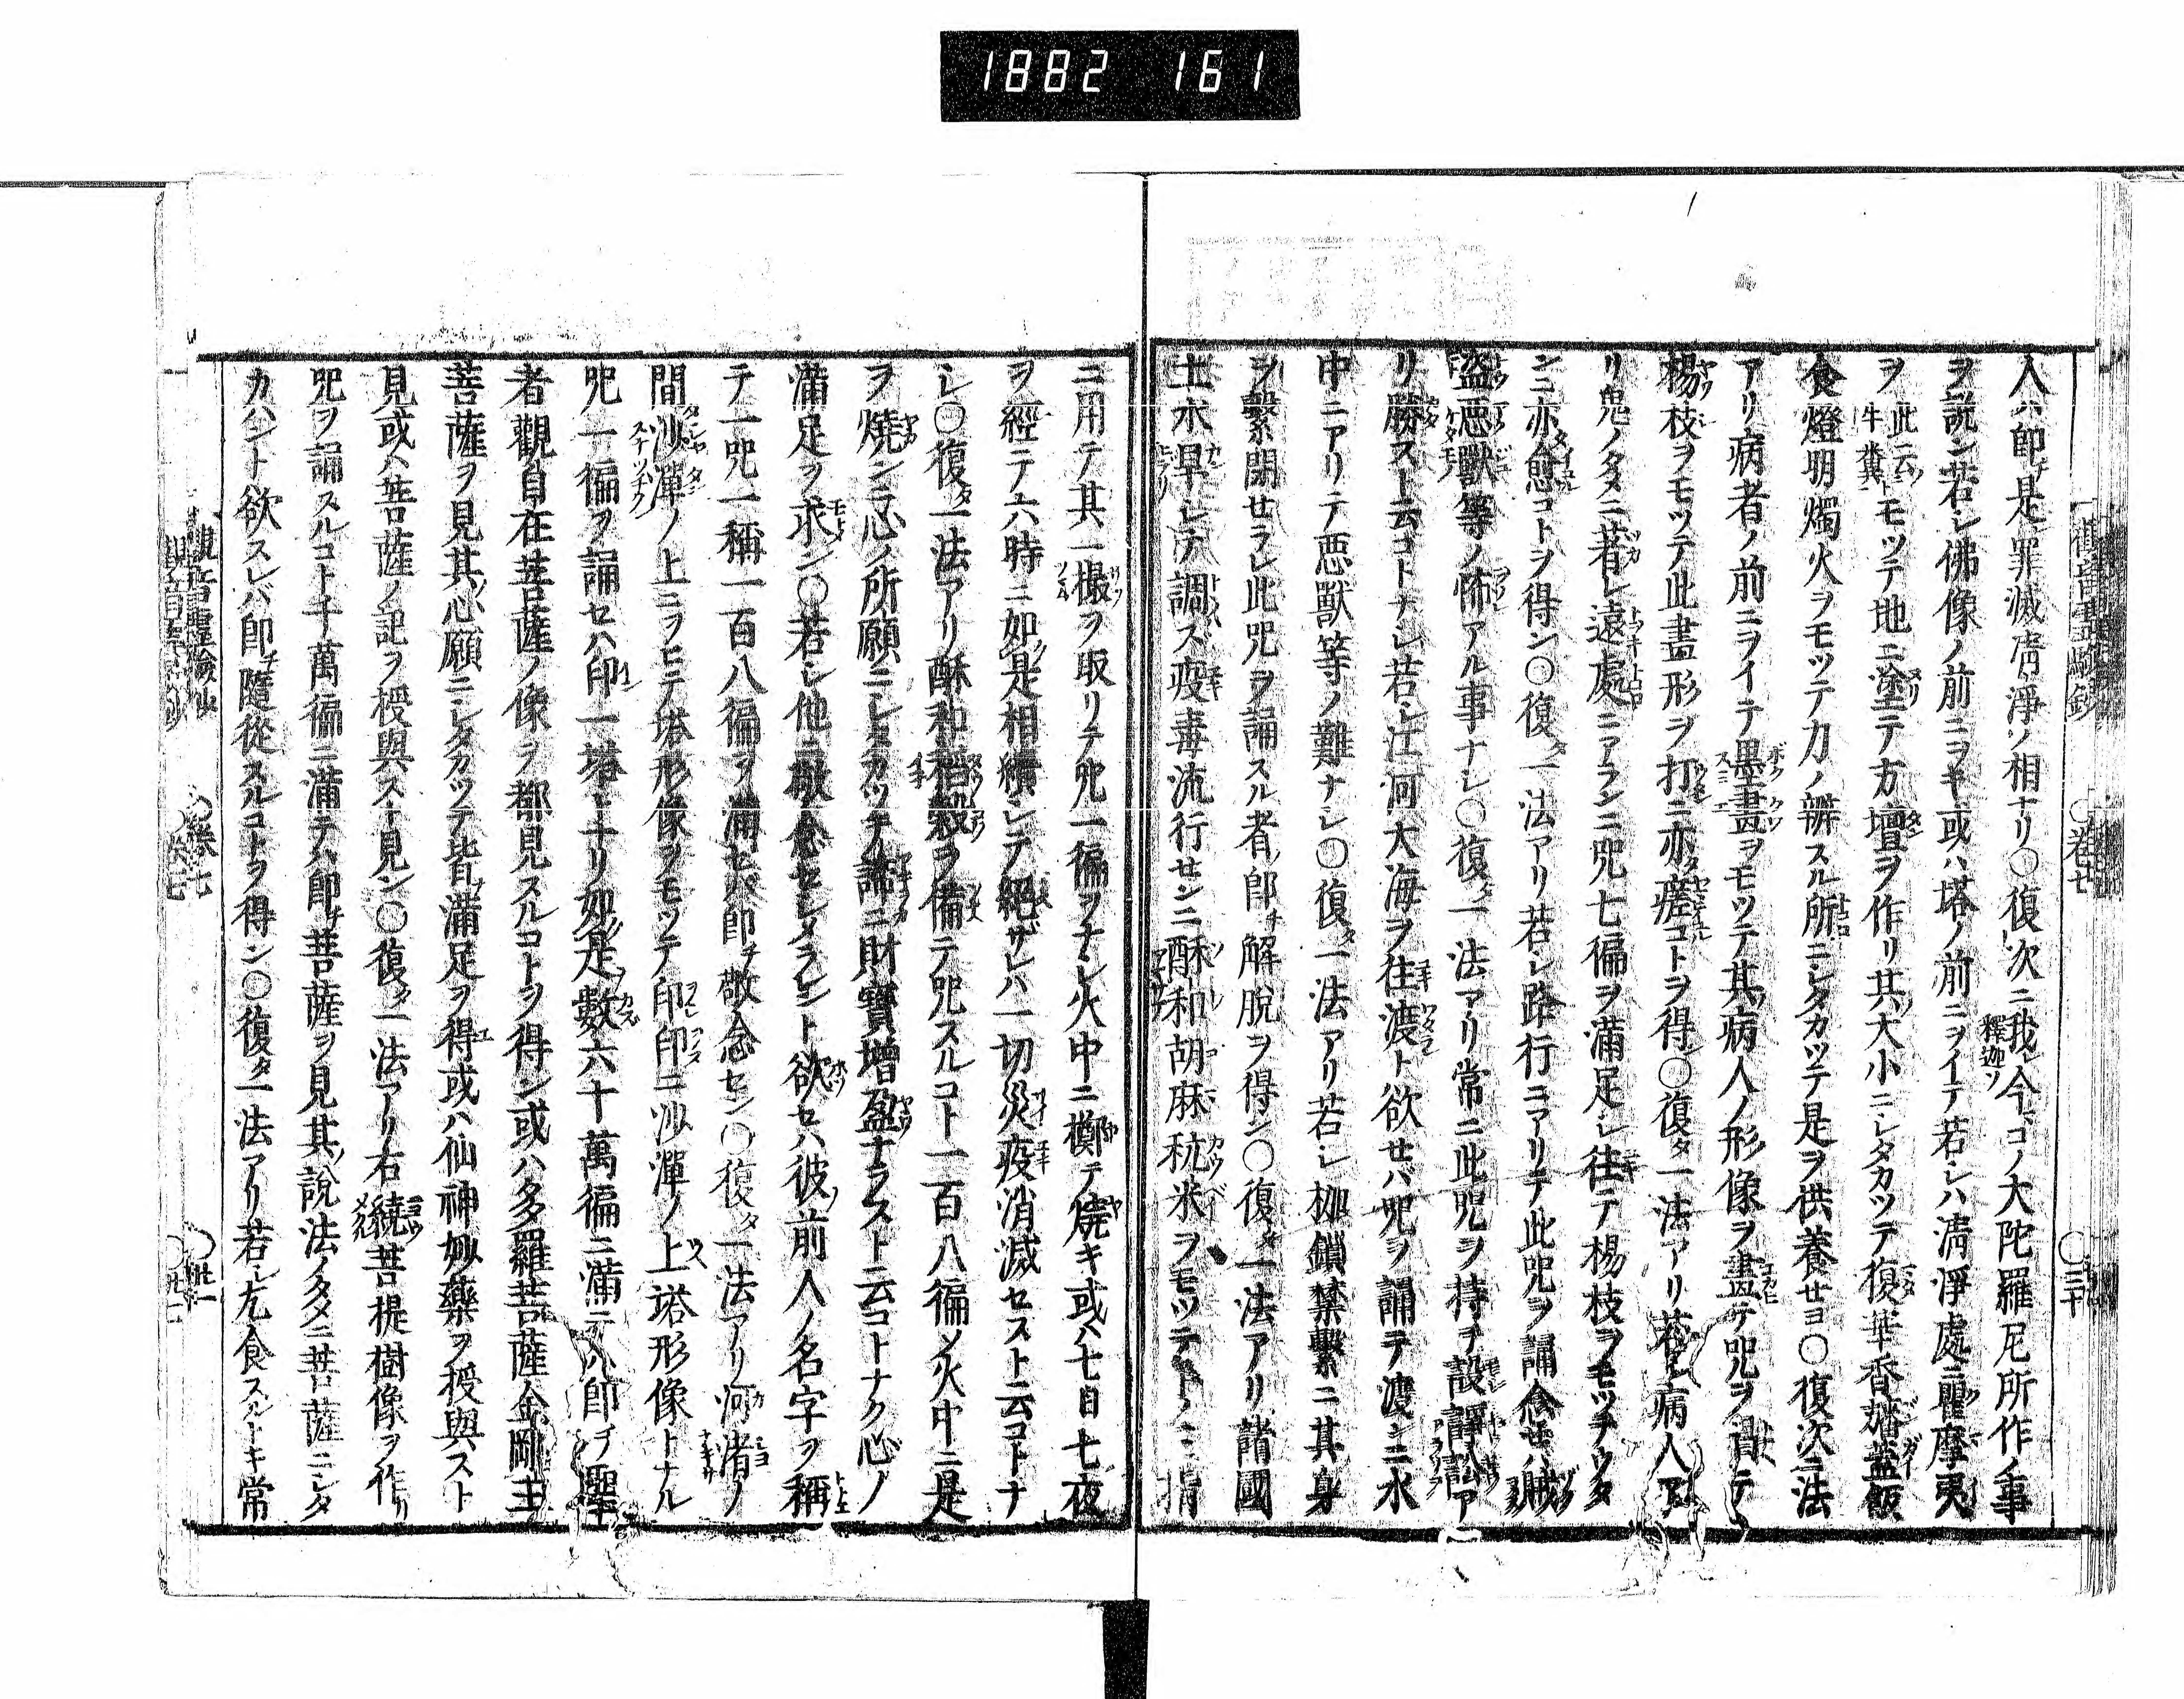 1882 161
入ハ即チ是罪滅清淨ノ相ナリ〇復次ニ我釋迦ソ今コノ大陀羅尼所作ノ事
ヲ説ン若シ佛像ノ前ニヲキ或ハ塔ノ前ニヲイテ若シハ清淨處ニ瞿摩夷
ヲ此云牛糞トモツテ地ニ塗テ方壇ヲ作リ其大小ニシタカツテ復華香旛蓋飯
食燈明燭火ヲモツテ力ノ辨スル所ニシタカツテ是ヲ供養セヨ〇復次ニ法
アリ病者ノ前ニヲイテ墨畫ヲモツテ其病人ノ形像ヲ畫テ咒ヲ誦テ
楊枝ヲモツテ此畫形ヲ打ニ亦瘥コトヲ得〇復タ一法アリ若シ病人ア
リ鬼ノタメニ著シ遠處ニアランニ咒七徧ヲ滿足シ往テ楊枝ヲモツテウタ
ンニ亦愈コトヲ得ン〇復タ一法アリ若シ路行ニアリテ此咒ヲ誦念セハ賊
盜惡獸等ノ怖アル事ナシ〇復タ一法アリ常ニ此咒ヲ持チ設諍訟ア
リ勝スト云コトナシ若シ江河大海ヲ往渡ト欲セバ咒ヲ誦テ渡ンニ水
中ニアリテ惡獸等ノ難ナシ〇復タ一法アリ若シ枷鎖禁繫ニ其身
ヲ繫閉セラレ此咒ヲ誦スル者ハ即チ解脱ヲ得ン〇復タ一法アリ諸國
土水旱シテ調ス疫毒流行センニ酥和胡麻秔米ヲモツテトノミ指
ニ用テ其一撮ヲ取リテ咒一徧ヲナシ火中ニ擲テ燒キ或ハ七日七夜
ヲ經テ六時ニ如是相續シテ絶ザレハ一切災疫消滅セスト云コトナ
シ〇復タ一法アリ酥和稻穀ヲ備テ咒スルコト一百八徧ノ火中ニ是
ヲ燒ンニ心ノ所願ニシタカツテ諦ニ財寶增盈ナラスト云コトナク心ノ
滿足ヲ求ン〇若シ他ニ敬念セシメラレント欲セハ彼ノ前人ノ名字ヲ稱
テ一咒一稱一百八徧ヲ滿セバ即チ敬念セン〇復タ一法アリ河渚ノ
間沙潬ノ上ニヲヒテ塔形像ヲモツテ印印ニ沙潬ノ上塔形像トナル
咒一徧ヲ誦セハ印一塔トナリ如是數六十萬徧ニ滿テハ即チ聖
者觀自在菩薩ノ像ヲ都見スルコトヲ得ン或ハ多羅菩薩金剛主
菩薩ヲ見其心願ニシタカツテ皆滿足ヲ得或ハ仙神妙藥ヲ授與スト
見或ハ菩薩ノ記ヲ授與スト見ン〇復タ一法アリ右繞菩提樹像ヲ作リ
咒ヲ誦スルコト千萬徧ニ滿テハ即チ菩薩ヲ見其ノ説法ノタメニ菩薩ニシタ
カハント欲スレバ即チ隨從スルコトヲ得ン〇復タ一法アリ若シ乞食スルトキ常